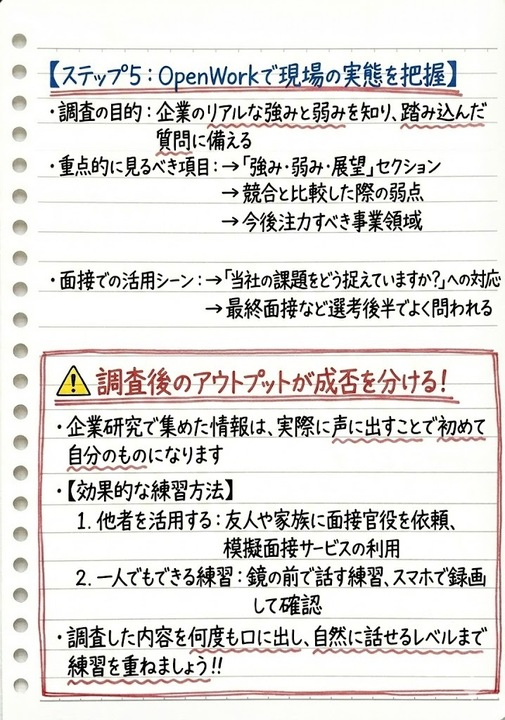 【ステップ5：OpenWorkで現場の実態を把握】
・調査の目的：企業のリアルな強みと弱みを知り、踏み込んだ
質問に備える
・重点的に見るべき項目：→「強み・弱み・展望」セクション
→ 競合と比較した際の弱点
→ 今後注力すべき事業領域
・面接での活用シーン：→「当社の課題をどう捉えていますか?」への対応
→ 最終面接など選考後半でよく問われる
調査後のアウトプットが成否を分ける!
・企業研究で集めた情報は、実際に声に出すことで初めて
自分のものになります
・【効果的な練習方法】
1. 他者を活用する：友人や家族に面接官役を依頼、
模擬面接サービスの利用
2. 一人でもできる練習：鏡の前で話す練習、スマホで録画
して確認
・調査した内容を何度も口に出し、自然に話せるレベルまで
練習を重ねましょう!!